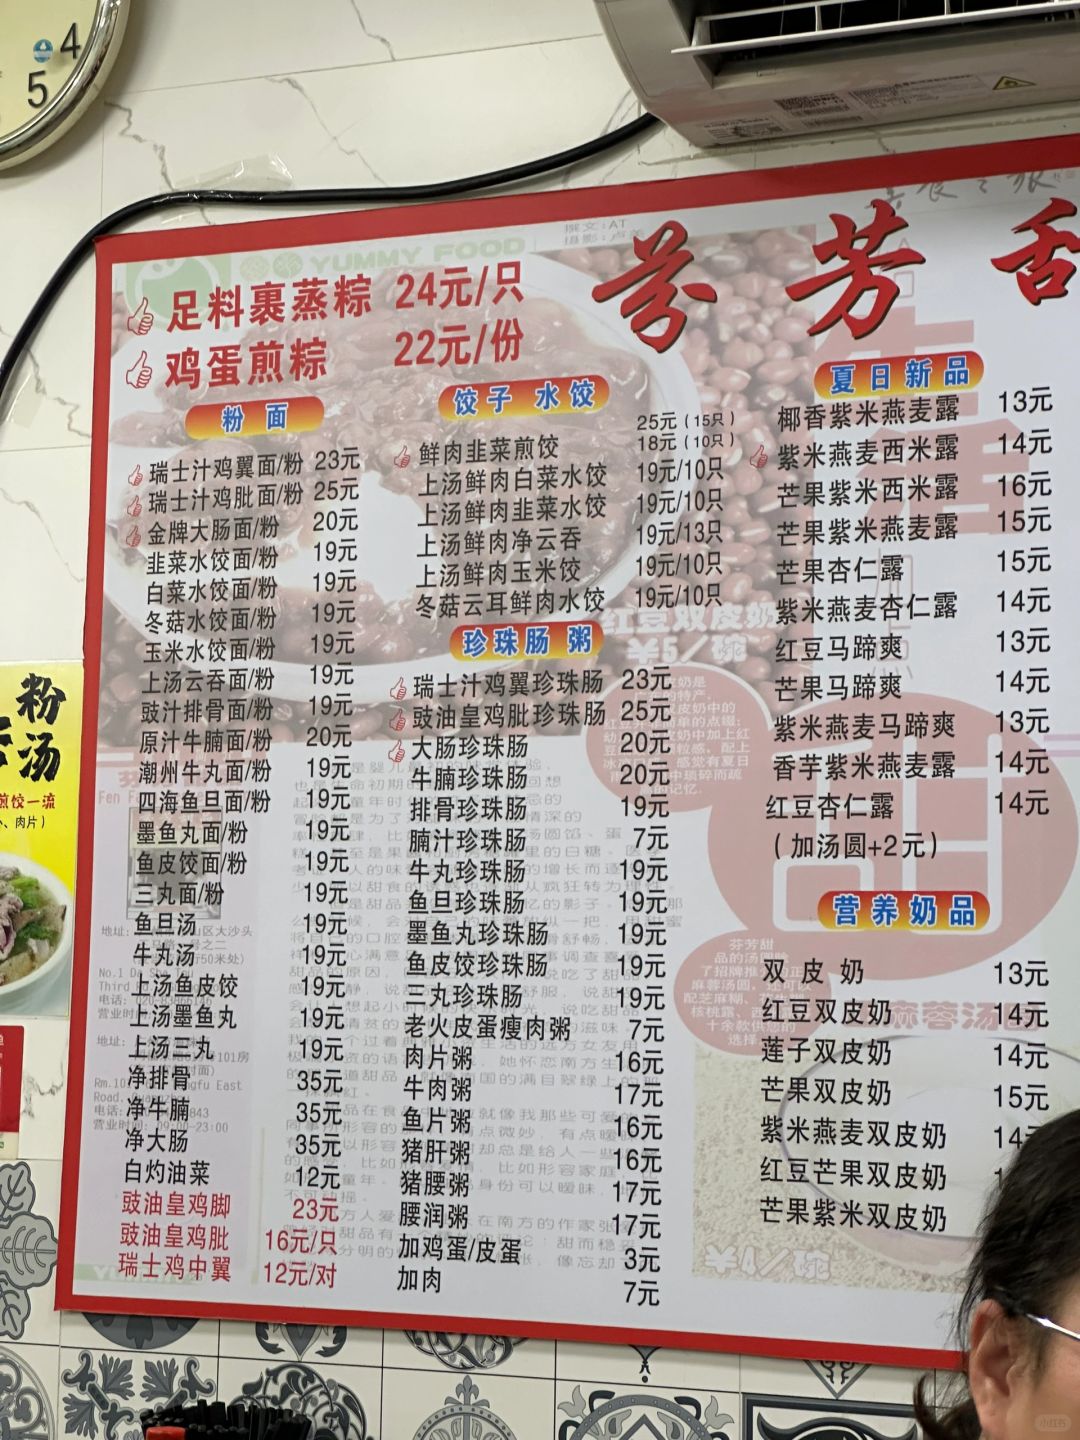 4
5
芬芳舌
YUMMY FOOD
撰文:AT
足料裹蒸粽 24元/只
鸡蛋煎粽 22元/份
粉面
瑞士汁鸡翼面/粉 23元
瑞士汁鸡肶面/粉 25元
金牌大肠面/粉 20元
韭菜水饺面/粉 19元
白菜水饺面/粉 19元
冬菇水饺面/粉 19元
玉米水饺面/粉 19元
上汤云吞面/粉 19元
豉汁排骨面/粉 19元
原汁牛腩面/粉 20元
潮州牛丸面/粉 19元
四海鱼旦面/粉 19元
墨鱼丸面/粉 19元
鱼皮饺面/粉 19元
三丸面/粉 19元
鱼旦汤 19元
牛丸汤 19元
上汤鱼皮饺 19元
上汤墨鱼丸 19元
上汤三丸 19元
净排骨 35元
净牛腩 35元
净大肠 35元
白灼油菜 12元
豉油皇鸡脚 23元
豉油皇鸡肶 16元/只
瑞士鸡中翼 12元/对
饺子 水饺
鲜肉韭菜煎饺 25元(15只)
18元(10只)
上汤鲜肉白菜水饺 19元/10只
上汤鲜肉韭菜水饺 19元/10只
上汤鲜肉净云吞 19元/13只
上汤鲜肉玉米饺 19元/10只
冬菇云耳鲜肉水饺 19元/10只
珍珠肠 粥
瑞士汁鸡翼珍珠肠 23元
豉油皇鸡肶珍珠肠 25元
大肠珍珠肠 20元
牛腩珍珠肠 20元
排骨珍珠肠 19元
腩汁珍珠肠 7元
牛丸珍珠肠 19元
鱼旦珍珠肠 19元
墨鱼丸珍珠肠 19元
鱼皮饺珍珠肠 19元
三丸珍珠肠 19元
老火皮蛋瘦肉粥 7元
肉片粥 16元
牛肉粥 17元
鱼片粥 16元
猪肝粥 16元
猪腰粥 17元
腰润粥 17元
加鸡蛋/皮蛋 3元
加肉 7元
夏日新品
椰香紫米燕麦露 13元
紫米燕麦西米露 14元
芒果紫米西米露 16元
芒果紫米燕麦露 15元
芒果杏仁露 15元
紫米燕麦杏仁露 14元
红豆马蹄爽 13元
芒果马蹄爽 14元
紫米燕麦马蹄爽 13元
香芋紫米燕麦露 14元
红豆杏仁露 14元
(加汤圆+2元)
营养奶品
双皮奶 13元
红豆双皮奶 14元
莲子双皮奶 14元
芒果双皮奶 15元
紫米燕麦双皮奶 14
红豆芒果双皮奶
芒果紫米双皮奶
红豆双皮奶
¥5/碗
¥4/碗
粉
汤
煎饺一流
、肉片)
小红书